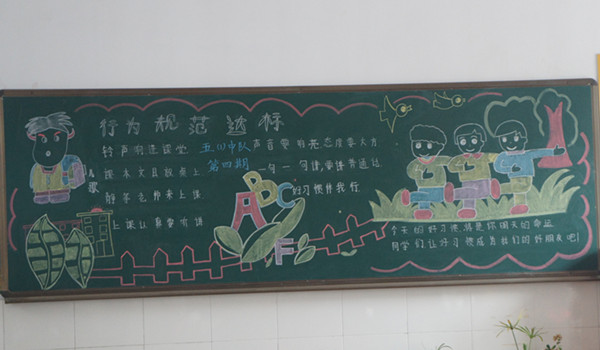 行为规范达标
儿歌
铃声响进课堂
课本文具放桌上
静等老师来上课
上课认真要听讲
五(1)中队
第四期
声音响亮态度要大方
一句一句讲普通话
的习惯伴我行
ABC
F
今天的好习惯就是你明天的命运
同学们,让好习惯成为我们的好朋友吧!